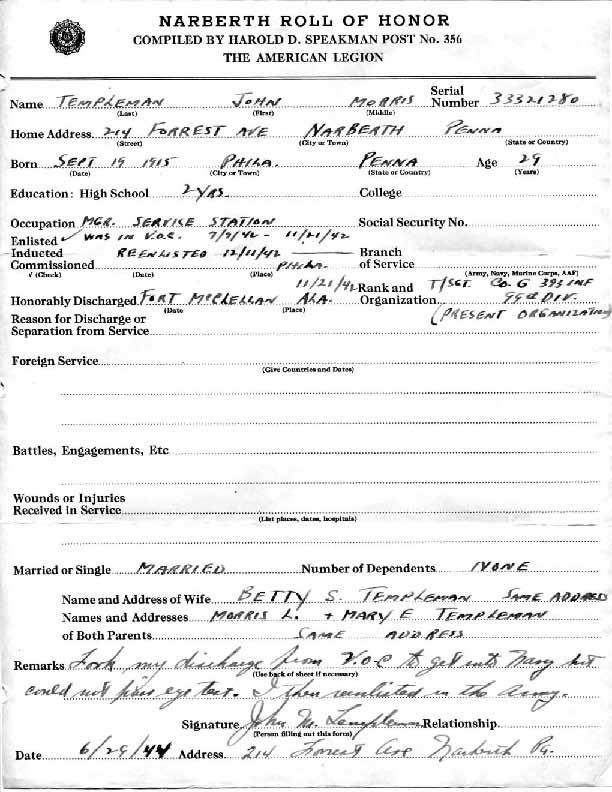 NARBERTH ROLL OF HONOR
COMPILED BY HAROLD D. SPEAKMAN POST No. 356
THE AMERICAN LEGION
Name TEMPLEMAN JOHN MORRIS Serial Number 33321280
(Last) (First) (Middle)
Home Address 214 FORREST AVE NARBERTH PENNA
(Street) (City or Town) (State or Country)
Born SEPT 19 1915 PHILA. PENNA Age 29
(Date) (City or Town) (State or Country) (Years)
Education: High School 2 YRS. College
Occupation MGR. SERVICE STATION Social Security No.
Enlisted ✓ WAS IN V.O.C. 7/9/42 - 11/21/42
Inducted REENLISTED 12/11/42 Branch
Commissioned PHILA. of Service
√ (Check) (Date) (Place) (Army, Navy, Marine Corps, AAF)
11/21/42 Rank and T/SGT. CO. G 393 INF
Honorably Discharged FORT McCLELLAN ALA. Organization 99th DIV.
(Date (Place) (PRESENT ORGANIZATION)
Reason for Discharge or
Separation from Service
Foreign Service
(Give Countries and Dates)
Battles, Engagements, Etc
Wounds or Injuries
Received in Service
(List places, dates, hospitals)
Married or Single MARRIED Number of Dependents NONE
Name and Address of Wife BETTY S. TEMPLEMAN SAME ADDRESS
Names and Addresses MORRIS L. + MARY E TEMPLEMAN
of Both Parents SAME ADDRESS
Remarks Took my discharge from V.O.C to get into Navy but
(Use back of sheet if necessary)
could not pass eye test. I then reenlisted in the Army.
Signature John M. Templeman Relationship
(Person filling out this form)
Date 6/29/44 Address 214 Forrest Ave Narberth Pa.